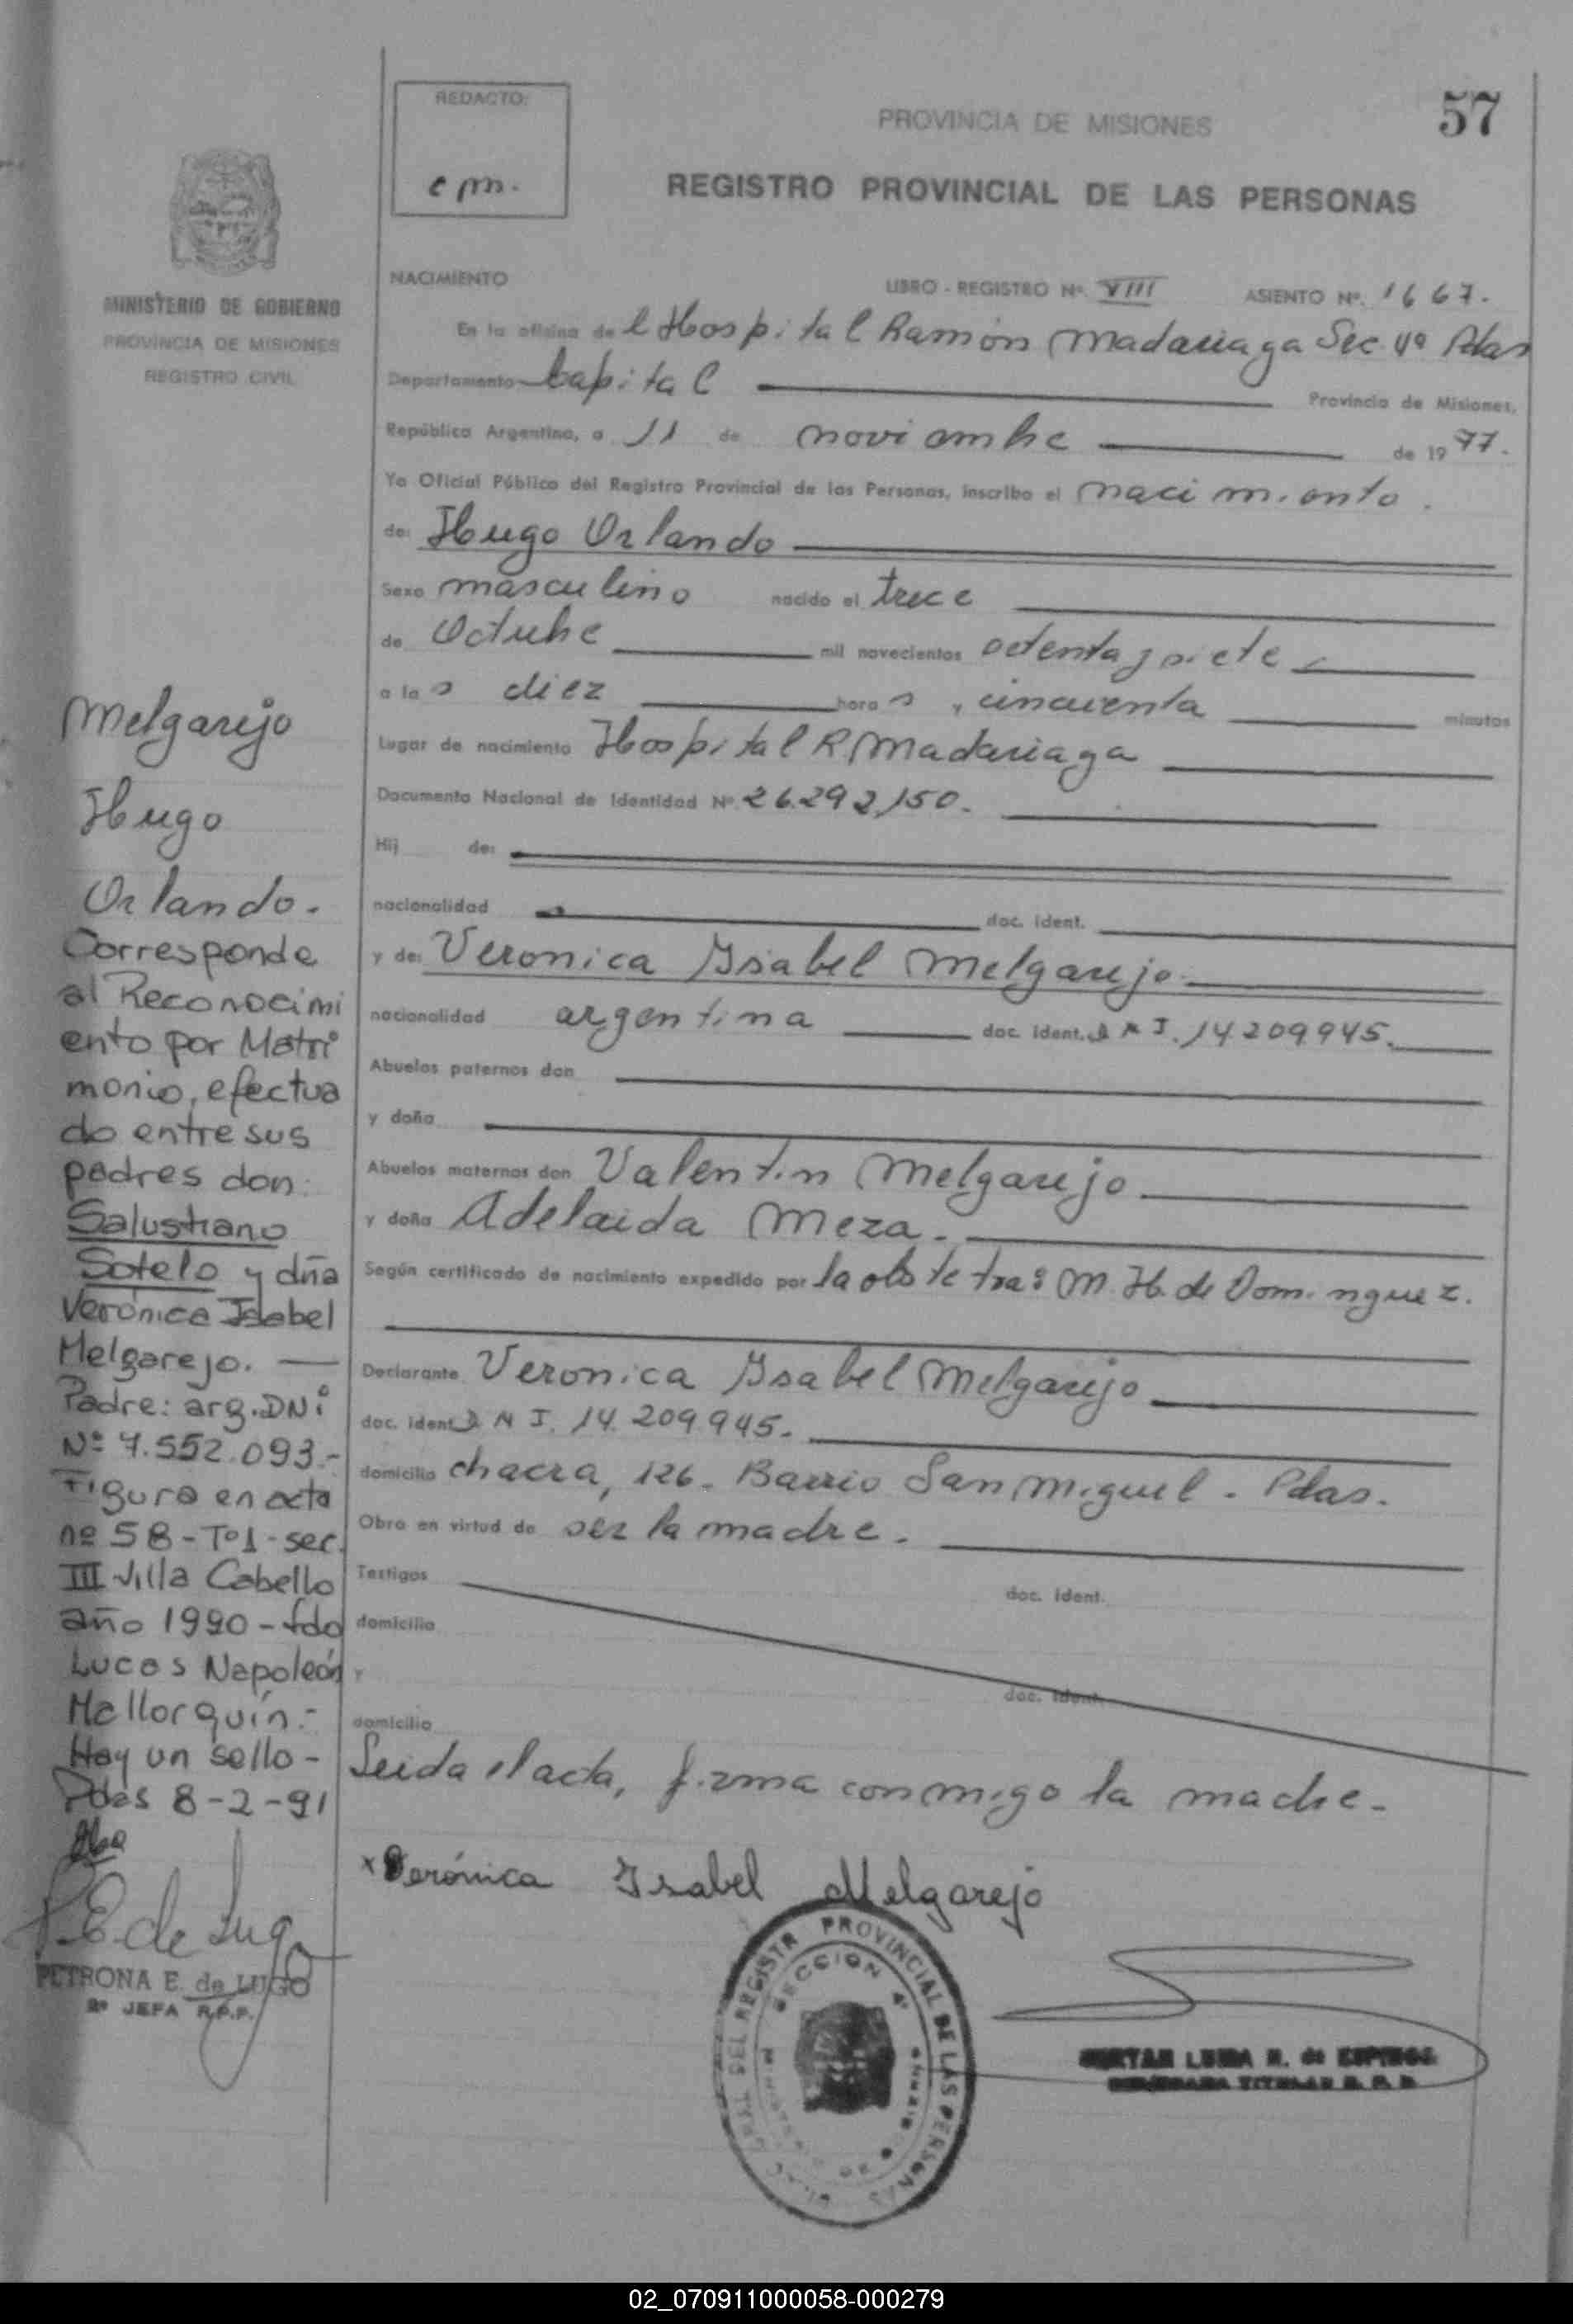 REDACTO:
e m.
PROVINCIA DE MISIONES
57
REGISTRO PROVINCIAL DE LAS PERSONAS
MINISTERIO DE GOBIERNO
PROVINCIA DE MISIONES
REGISTRO CIVIL
NACIMIENTO
LIBRO - REGISTRO Nº. VIII
ASIENTO Nº. 1667.
En la oficina del Hospital Ramón Madariaga Sec. 4º Pdas
Departamento Capital Provincia de Misiones,
República Argentina, a 11 de noviembre de 1977.
Yo Oficial Público del Registro Provincial de las Personas, inscribo el nacimiento.
de: Hugo Orlando
Sexo masculino nacido el trece
de Octubre mil novecientos setenta y siete
a las diez horas, cincuenta minutos
Lugar de nacimiento Hospital R. Madariaga
Documento Nacional de Identidad Nº 26.292,150.
Hij de:
nacionalidad doc. ident.
y de: Veronica Ysabel Melgarejo
nacionalidad argentina doc. ident. D N I. 14.209945.
Abuelos paternos don
y doña
Abuelos maternos don Valentin Melgarejo
y doña Adelaida Meza.
Según certificado de nacimiento expedido por la obstetra: M. H. de Dominguez.
Declarante Veronica Ysabel Melgarejo
doc. ident. D N I. 14.209.945.
domicilio chacra, 126. Barrio San Miguel. Pdas.
Obra en virtud de ser la madre.
Testigos doc. ident.
domicilio
y doc. ident.
domicilio
Leida el acta, firma conmigo la madre.
x Verónica Ysabel Melgarejo
Melgarejo
Hugo
Orlando.
Corresponde
al Reconocimi
ento por Matri
monio, efectua
do entre sus
padres don:
Salustiano
Sotelo y dña
Verónica Isabel
Melgarejo.
Padre: arg. DNi
Nº 7.552.093.-
Figura en acta
nº 58 - Tº1 - sec.
III Villa Cabello
año 1990 - fdo
Lucas Napoleón
Mallorquín.-
Hay un sello -
Pdas 8-2-91
P.E. de Lugo
PETRONA E. de LUGO
2º JEFA R.P.P.
GRAL DEL REGISTR PROVINCIAL DE LAS PERSONAS
SECCION 4º
02_070911000058-000279